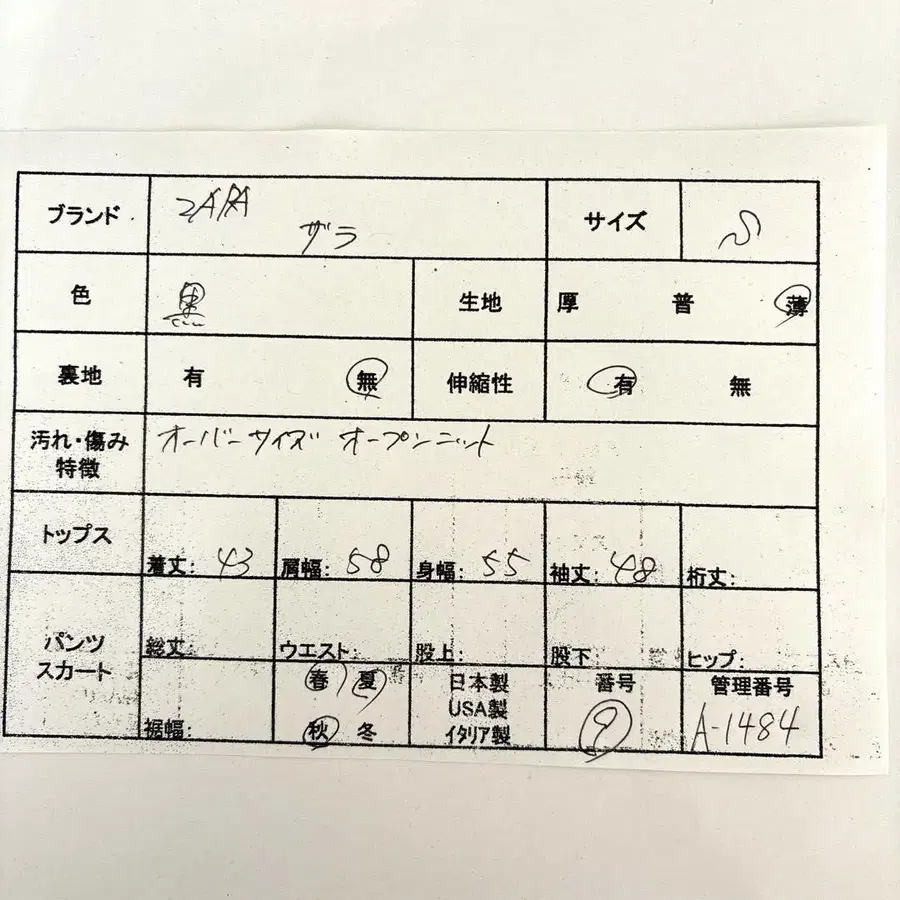 ブランド ZARA サイズ S
ザラ
色 黒 生地 厚 普 薄
裏地 有 無 伸縮性 有 無
汚れ・傷み オーバーサイズ オープンニット
特徴
トップス
着丈: 43 肩幅: 58 身幅: 55 袖丈: 48 裄丈:
パンツ
スカート
総丈: ウエスト: 股上: 股下 ヒップ:
春 夏 日本製 番号 管理番号
USA製
裾幅: 秋 冬 イタリア製 9 A-1484